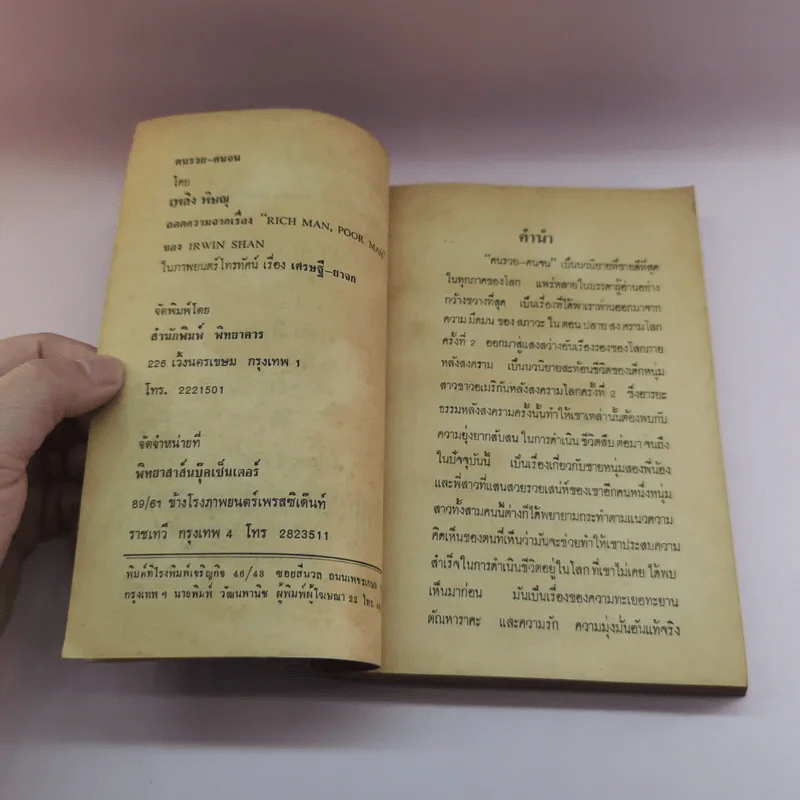 คนรวย-คนจน
โดย
เพลิง พิษณุ
ถอดความจากเรื่อง "RICH MAN, POOR MAN"
ของ IRWIN SHAN
ในภาพยนตร์โทรทัศน์ เรื่อง เศรษฐี-ยาจก
จัดพิมพ์โดย
สำนักพิมพ์ พิทยาคาร
226 เวิ้งนครเขษม กรุงเทพ 1
โทร. 2221501
จัดจำหน่ายที่
พิทยาสาส์นบุ๊คเซ็นเตอร์
89/61 ข้างโรงภาพยนตร์เพรสซิเด๊นท์
ราชเทวี กรุงเทพ 4 โทร 2823511
พิมพ์ที่โรงพิมพ์เจริญกิจ 46/48 ซอยสีนวล ถนนเพชรเกษม
กรุงเทพ ฯ นายพิมพ์ วัฒนพานิช ผู้พิมพ์ผู้โฆษณา 22 โทร
คำนำ
"คนรวย-คนจน" เป็นนวนิยายที่ขายดีที่สุด
ในทุกภาคของโลก แพร่หลายในบรรดาผู้อ่านอย่าง
กว้างขวางที่สุด เป็นเรื่องที่ได้พาเราท่านออกมาจาก
ความ มืดมน ของ สภาวะ ใน ตอน ปลาย สง ครามโลก
ครั้งที่ 2 ออกมาสู่แสงสว่างอันเรืองรองของโลกภาย
หลังสงคราม เป็นนวนิยายสะท้อนชีวิตของเด็กหนุ่ม
สาวชาวอเมริกันหลังสงครามโลกครั้งที่ 2 ซึ่งอารยะ
ธรรมหลังสงครามครั้งนั้นทำให้เขาเหล่านั้นต้องพบกับ
ความยุ่งยากสับสน ในการดำเนิน ชีวิตสืบ ต่อมา จนถึง
ในปัจจุบันนี้ เป็นเรื่องเกี่ยวกับชายหนุ่มสองพี่น้อง
และพี่สาวที่แสนสวยรวยเสน่ห์ของเขาอีกคนหนึ่งหนุ่ม
สาวทั้งสามคนนี้ต่างก็ได้พยายามกระทำตามแนวความ
คิดเห็นของตนที่เห็นว่ามันจะช่วยทำให้เขาประสบความ
สำเร็จในการดำเนินชีวิตอยู่ในโลก ที่เขาไม่เคย ได้พบ
เห็นมาก่อน มันเป็นเรื่องของความทะเยอทะยาน
ตัณหาราคะ และความรัก ความมุ่งมั่นอันแท้จริง